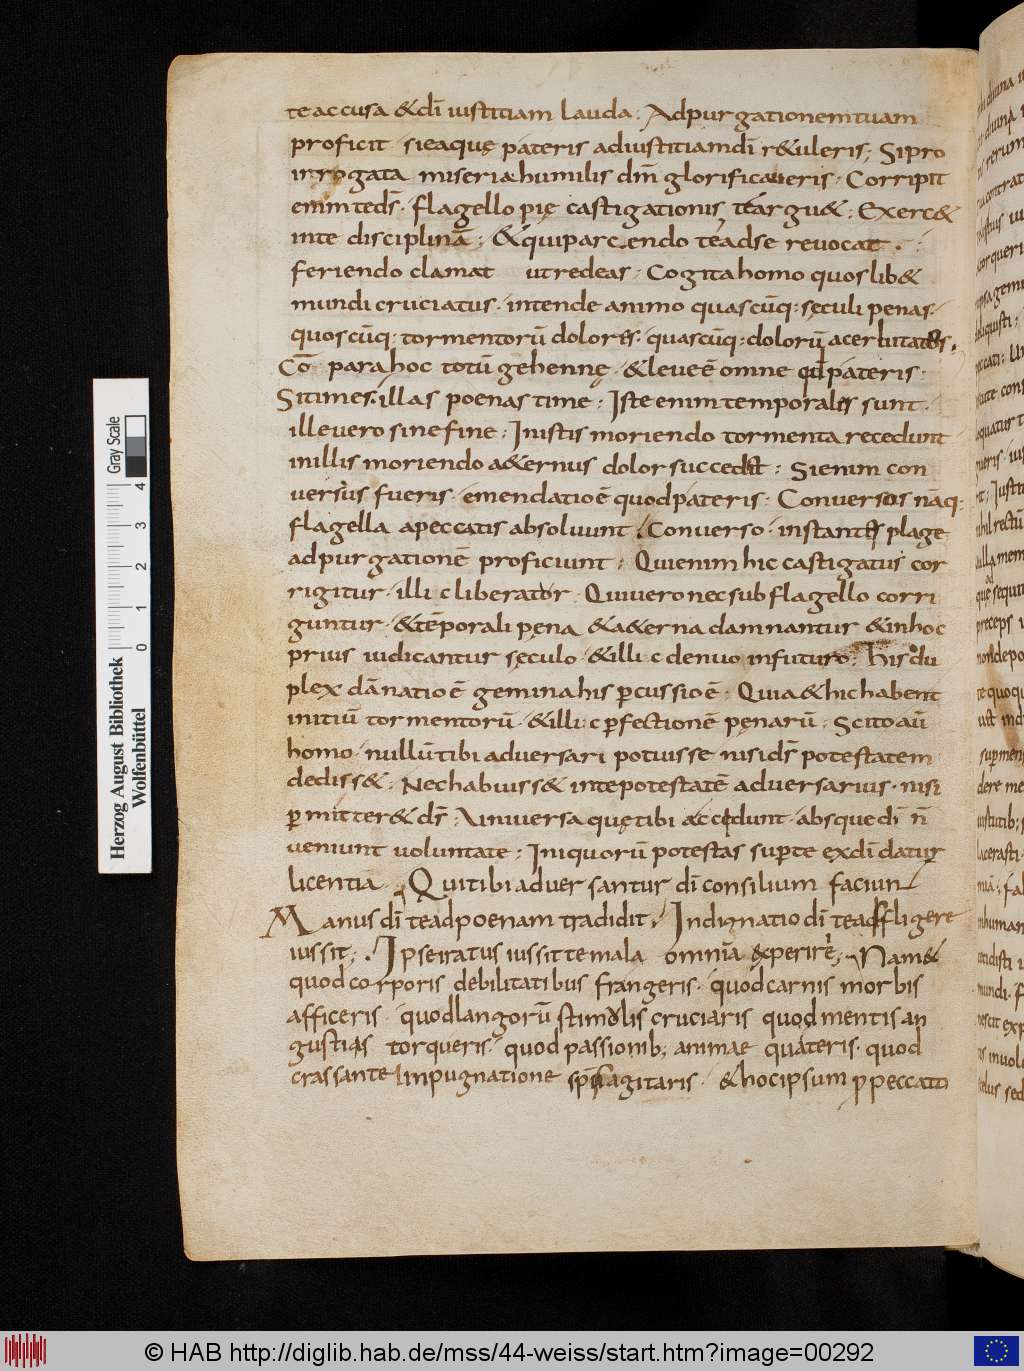 te accusa & dī iustitiam lauda · Ad purgationem tuam
proficit · si eaquę pateris ad iustitiam dī r&uleris; Si pro
irrogata miseria humilis dm̄ glorificaueris · Corripit
enim te ds̄ · flagello pię castigationis te argu& ; Exerc&
in te disciplinā ; & qui parcendo te ad se reuocat ·
feriendo clamat ut redeas · Cogita homo quos lib&
mundi cruciatus · intende animo quascūq; sęculi penas ·
quoscūq; tormentorū dolores · quascūq; dolorū acerbitates ·
Cō para hoc totū gehennę · & leue ē omne qd̄ pateris ·
Si times illas poenas time ; Iste enim temporales sunt ·
ille uero sine fine ; In istis moriendo tormenta recedunt
in illis moriendo a&ernus dolor succedit ; Si enim con
uersus fueris · emendatio ē quod pateris · Conuersos nāq;
flagella a peccatis absoluunt · Conuerso · instantes plage
ad purgationē proficiunt ; Qui enim hic castigatus cor
rigitur · illi c liberator · Qui uero nec sub flagello corri
guntur · & tēporali pena & a&erna damnantur & in hoc
prius iudicantur sęculo · & illi c denuo in futuro · His du
plex dānatio ē gemina his percussio ē · Quia & hic habent
initiū tormentorū · & illi c perfectionē pęnarū · Scito aū
homo · nullū tibi aduersari potuisse nisi ds̄ potestatem
dediss& ; Nec habuiss& in te potestatē aduersarius · nisi
permitter& ds̄ ; Uniuersa quę tibi accidunt · absque dī n̄
ueniunt uoluntate ; Iniquorū potestas super te ex dī datur
licentia · Qui tibi aduersantur dī consilium faciunt
Manus dī te ad poenam tradidit · Indignatio dī te adfligere
iussit ; Ipse iratus iussit te mala omnia experire ; Nam &
quod corporis debilitatibus frangeris · quod carnis morbis
afficeris · quod langorū stimolis cruciaris quod mentis an
gustias torqueris · quod passionib; animae quateris · quod
crassante impugnatione sp̄s agitaris · & hoc ipsum pro peccato
Herzog August Bibliothek
Wolfenbüttel
0 1 2 3 4
Gray Scale
© HAB http://diglib.hab.de/mss/44-weiss/start.htm?image=00292